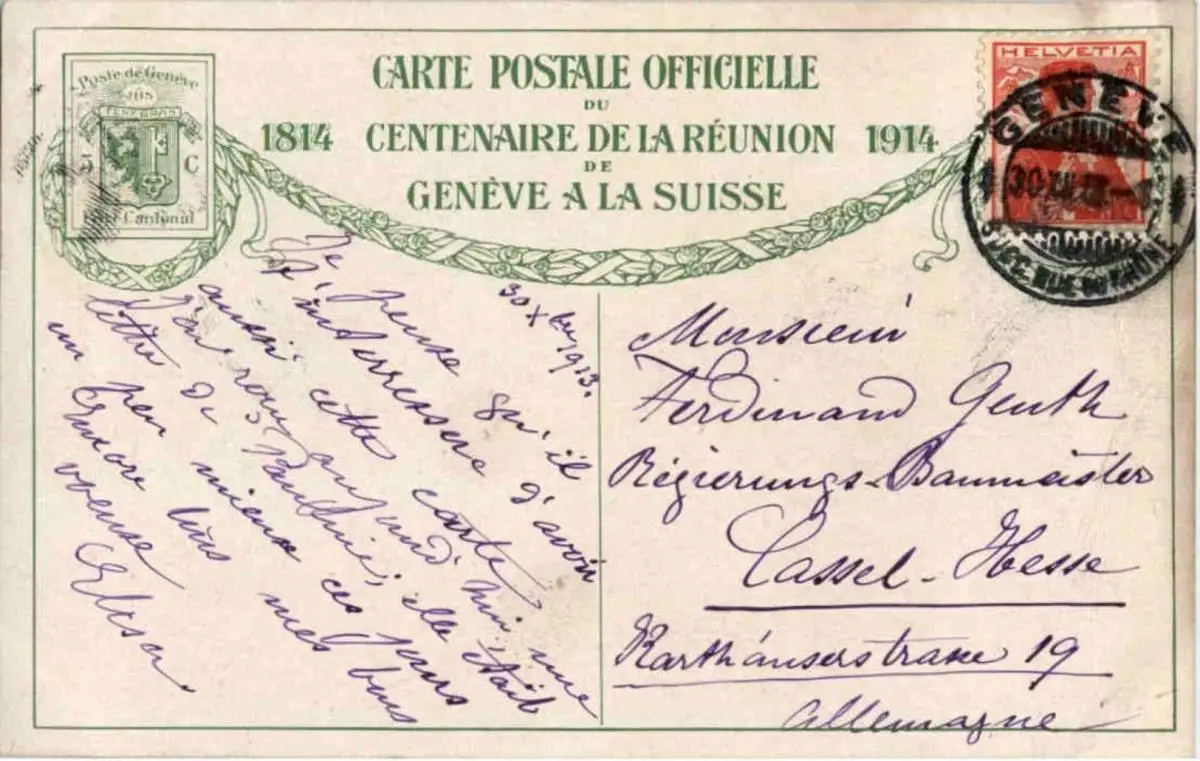 CARTE POSTALE OFFICIELLE
DU
1814 CENTENAIRE DE LA RÉUNION 1914
DE
GENÈVE A LA SUISSE
Poste de Genève
POST TENEBRAS
5 C
Port Cantonal
HELVETIA
GENÈVE
30.XII.13
SUCC. RUE DU RHÔNE
30 X 1913.
Je pense qu'il
t'interressera d'avoir
aussi cette carte
J'ai reçu aujourd'hui une
lettre de Pauline; elle était
un peu mieux ces jours
Encore tous mes bons
voeux
Monsieur
Ferdinand Genth
Régierungs-Baumeister
Cassel-Hesse
Karthäuserstrasse 19
Allemagne